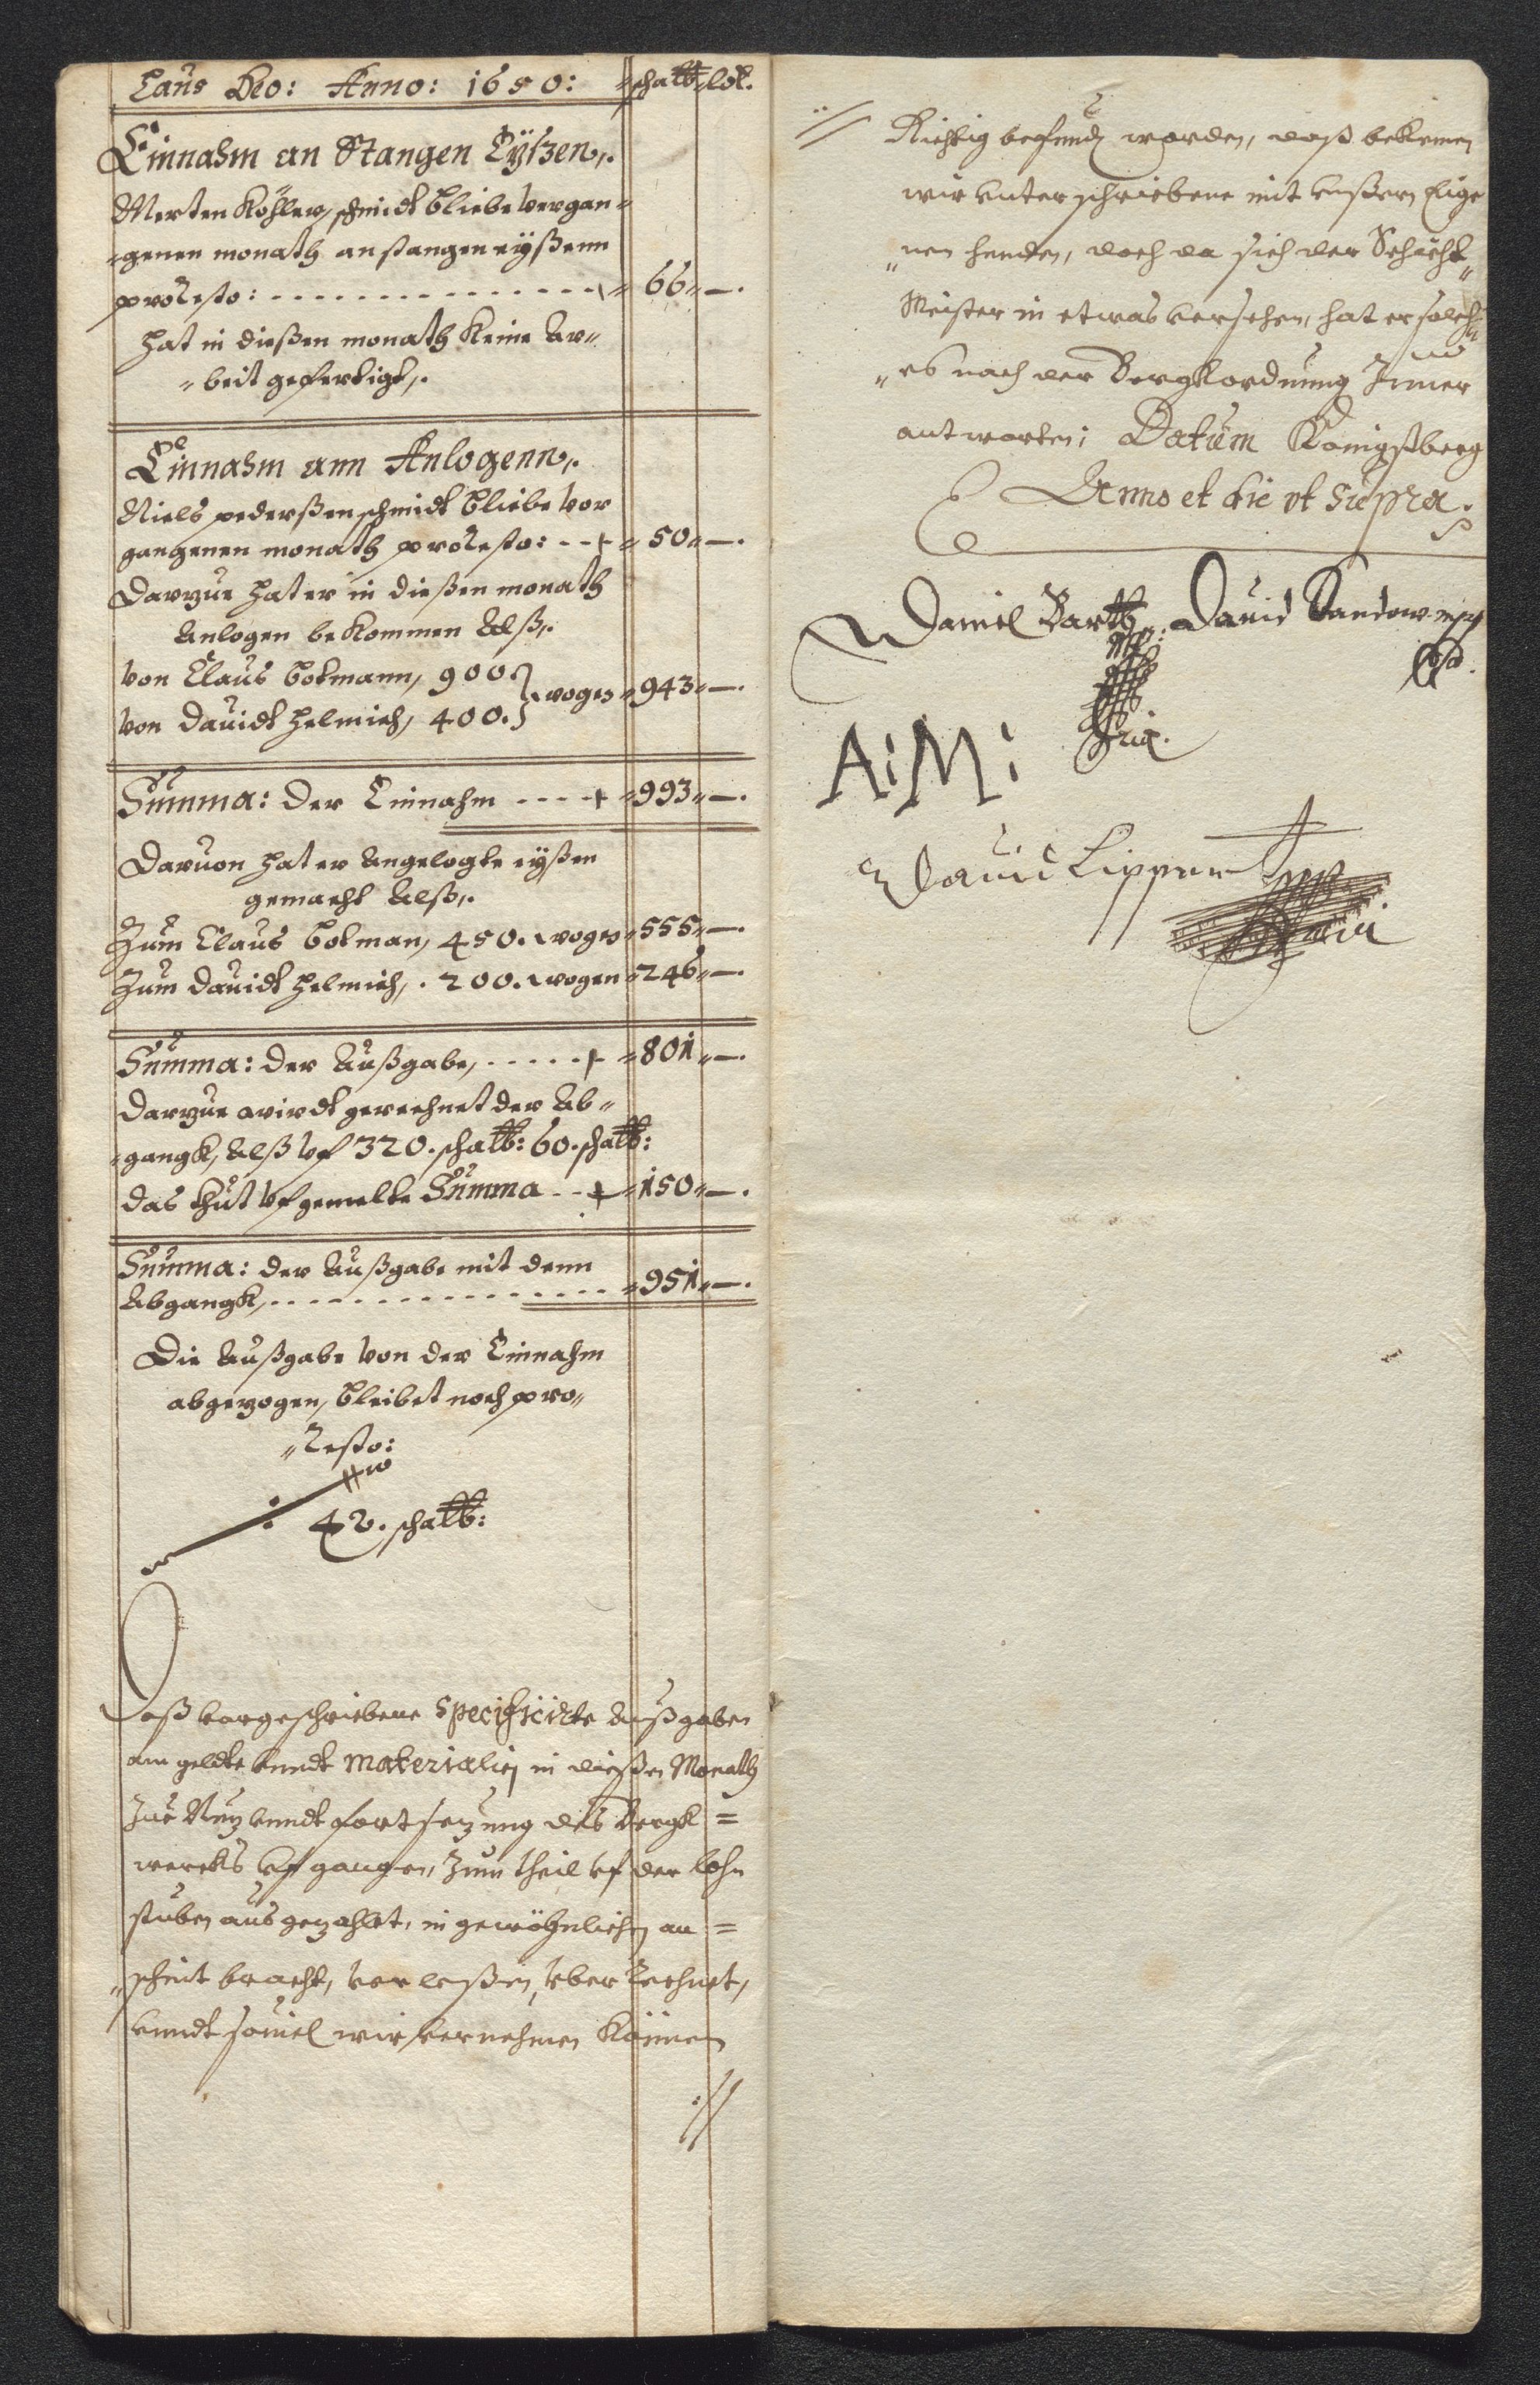 Laus Deo: Anno: 1650: schalb lot.
Einnahm an Stangen Eyßen,.
Merten Köhler, schmidt bliebe vergan-
-genen monath an stangen eyßenn
pro Resto: - - - - - - - - - - - - - - 66 –.
hat in dießen monath keine Ar-
-beit gefertigt,.
Einnahm ann Anlogenn,.
Niels pederßen schmidt bliebe vor
gangenen monath pro Resto: - - 50 –.
Darzue hat er in dießen monath
Anlogen bekommen Alß,.
von Claus Cotmann, 900 } wogen 943 –.
von Davidt Helmich, 400. }
Summa: der Einnahm - - - - 993 –.
Daruon hat er angelogte eyßen
gemacht Alß,.
Zum Claus Cotman, 450. wogen 555 –.
Zum Dauidt Helmich, . 200. wogen 246 –.
Summa: der Außgabe, - - - - - 801 –.
Darzue wirdt gerechnet der Ab-
-gangk, Alß vf 320. schalb: 60. schalb:
das thut vfgemelte Summa - - 150 –.
Summa: der Außgabe mit denn
Abgangk, - - - - - - - - - - - - - - - 951 –.
Die Außgabe von der Einnahm
abgezogen, bleibet noch pro-
-Resto:
42. schalb:
Daß vorgeschriebene Specificirte Außgaben
am geldte vnndt Materialien in dießen Monath
Zue Nuz vnndt fortsezung des Bergk =
wercks vfgangen, Zum theil vf der lohn
stuben ausgezahlt, in gewöhnlichen an =
schnit bracht, verleßen, vber Rechnet,
vnndt souiel wir vernehmen können
://
:// Richtig befunden worden, daß bekennen
wir vnterschriebene mit vnßern Eige
nen henden, doch da sich der Schicht
Meister in etwas versehen, hat er solch
es nach der Bergkordnung Zuuer
antworten; Datum Königßberg
Anno et die vt Supra.
Daniel Barth mp: David Sandow mpp
A: M:
Dauid Lippert mpp